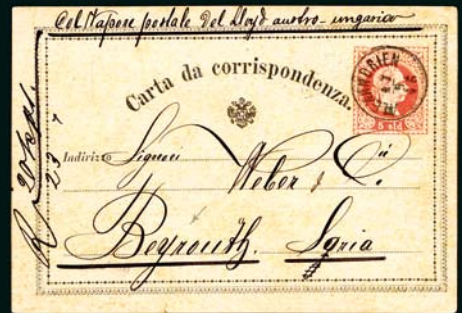 Col Vapore postale del Lloyd austro-ungarico
Carta da corrispondenza.
Indirizzo Signori
Weber & Cie
Beyrouth. Syria
5 sld